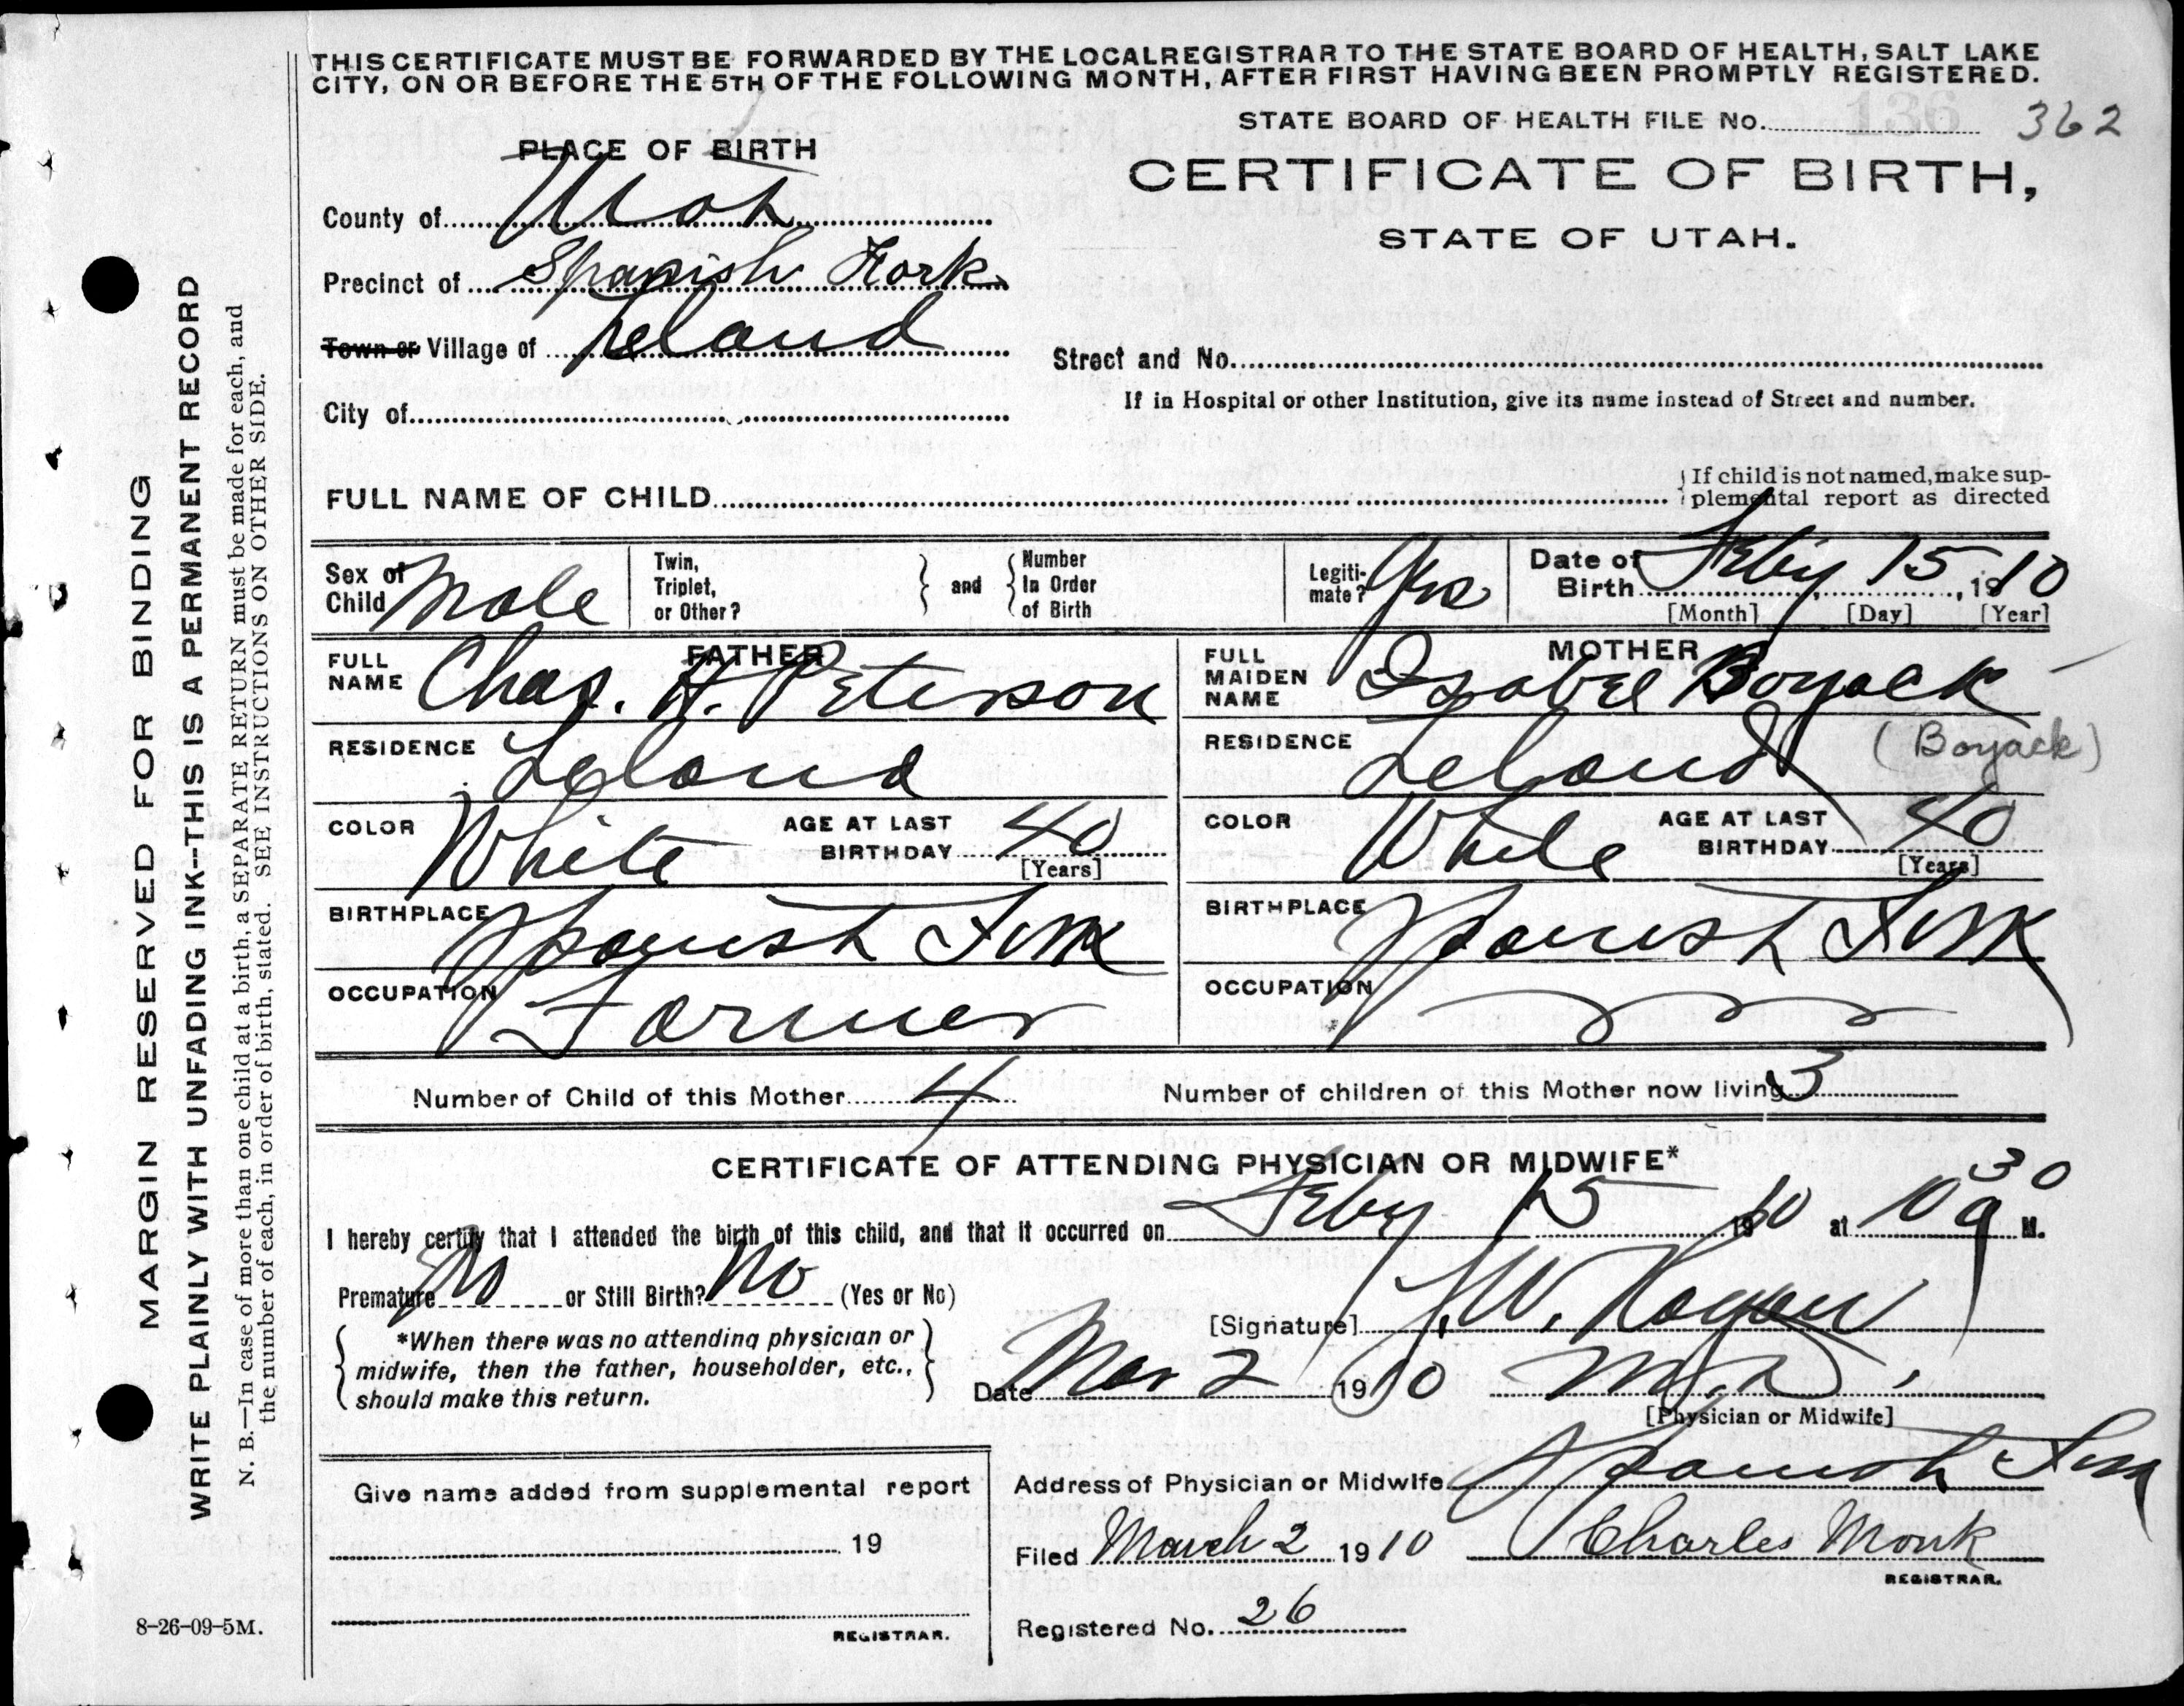 THIS CERTIFICATE MUST BE FORWARDED BY THE LOCAL REGISTRAR TO THE STATE BOARD OF HEALTH, SALT LAKE
CITY, ON OR BEFORE THE 5TH OF THE FOLLOWING MONTH, AFTER FIRST HAVING BEEN PROMPTLY REGISTERED.
STATE BOARD OF HEALTH FILE No. 136 362
PLACE OF BIRTH
CERTIFICATE OF BIRTH,
STATE OF UTAH.
County of Utah
Precinct of Spanish Fork
Town or Village of Leland
Street and No.
If in Hospital or other Institution, give its name instead of Street and number.
City of
FULL NAME OF CHILD
If child is not named, make sup-
plemental report as directed
Sex of Child Male
Twin, Triplet, or Other?
and
Number In Order of Birth
Legiti-mate? Yes
Date of Birth Feby 15, 1910
[Month] [Day] [Year]
FATHER
FULL NAME Chas. H. Peterson
RESIDENCE Leland
COLOR White AGE AT LAST BIRTHDAY 40
[Years]
BIRTHPLACE Spanish Fork
OCCUPATION Farmer
MOTHER
FULL MAIDEN NAME Isabel Boyack
(Boyack)
RESIDENCE Leland
COLOR White AGE AT LAST BIRTHDAY 40
[Years]
BIRTHPLACE Spanish Fork
OCCUPATION
Number of Child of this Mother 4 Number of children of this Mother now living 3
CERTIFICATE OF ATTENDING PHYSICIAN OR MIDWIFE*
I hereby certify that I attended the birth of this child, and that it occurred on Feby 15 1910 at 10 30 a M.
Premature No or Still Birth? No (Yes or No)
*When there was no attending physician or
midwife, then the father, householder, etc.,
should make this return.
[Signature] J. W. Hagan
Date Mar 2 1910 M.D.
[Physician or Midwife]
Address of Physician or Midwife Spanish Fork
Filed March 2 1910 Charles Monk
REGISTRAR.
Registered No. 26
Give name added from supplemental report
19
REGISTRAR.
8-26-09-5M.
MARGIN RESERVED FOR BINDING
WRITE PLAINLY WITH UNFADING INK--THIS IS A PERMANENT RECORD
N. B.—In case of more than one child at a birth, a SEPARATE RETURN must be made for each, and
the number of each, in order of birth, stated. SEE INSTRUCTIONS ON OTHER SIDE.